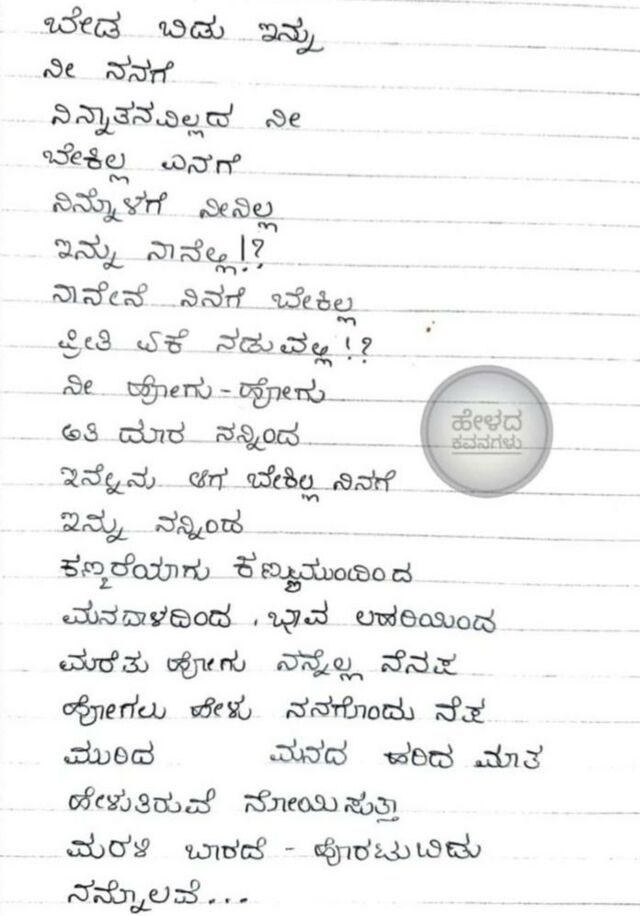 ಬೇಡ ಬಿಡು ಇನ್ನು
ನೀ ನನಗೆ
ನಿನ್ನಾತನವಿಲ್ಲದ ನೀ
ಬೇಕಿಲ್ಲ ಎನಗೆ
ನಿನ್ನೊಳಗೆ ನೀನಿಲ್ಲ
ಇನ್ನು ನಾನೆಲ್ಲಿ!?
ನಾನೇನೆ ನಿನಗೆ ಬೇಕಿಲ್ಲ
ಪ್ರೀತಿ ಏಕೆ ನಡುವಲ್ಲಿ!?
ನೀ ಹೋಗು-ಹೋಗು
ಅತಿ ದೂರ ನನ್ನಿಂದ
ಇನ್ನೇನು ಆಗ ಬೇಕಿಲ್ಲ ನಿನಗೆ
ಇನ್ನು ನನ್ನಿಂದ
ಕಣ್ಮರೆಯಾಗು ಕಣ್ಣಮುಂದಿಂದ
ಮನದಾಳದಿಂದ, ಭಾವ ಲಹರಿಯಿಂದ
ಮರೆತು ಹೋಗು ನನ್ನೆಲ್ಲ ನೆನಪ
ಹೋಗಲು ಹೇಳು ನನಗೊಂದು ನೆಪ
ಮುರಿದ ಮನದ ಹರಿದ ಮಾತ
ಹೇಳುತಿರುವೆ ನೋಯಿಸುತ್ತಾ
ಮರಳಿ ಬಾರದೆ - ಹೊರಟುಬಿಡು
ನನ್ನೊಲವೆ...
ಹೇಳದ
ಕವನಗಳು